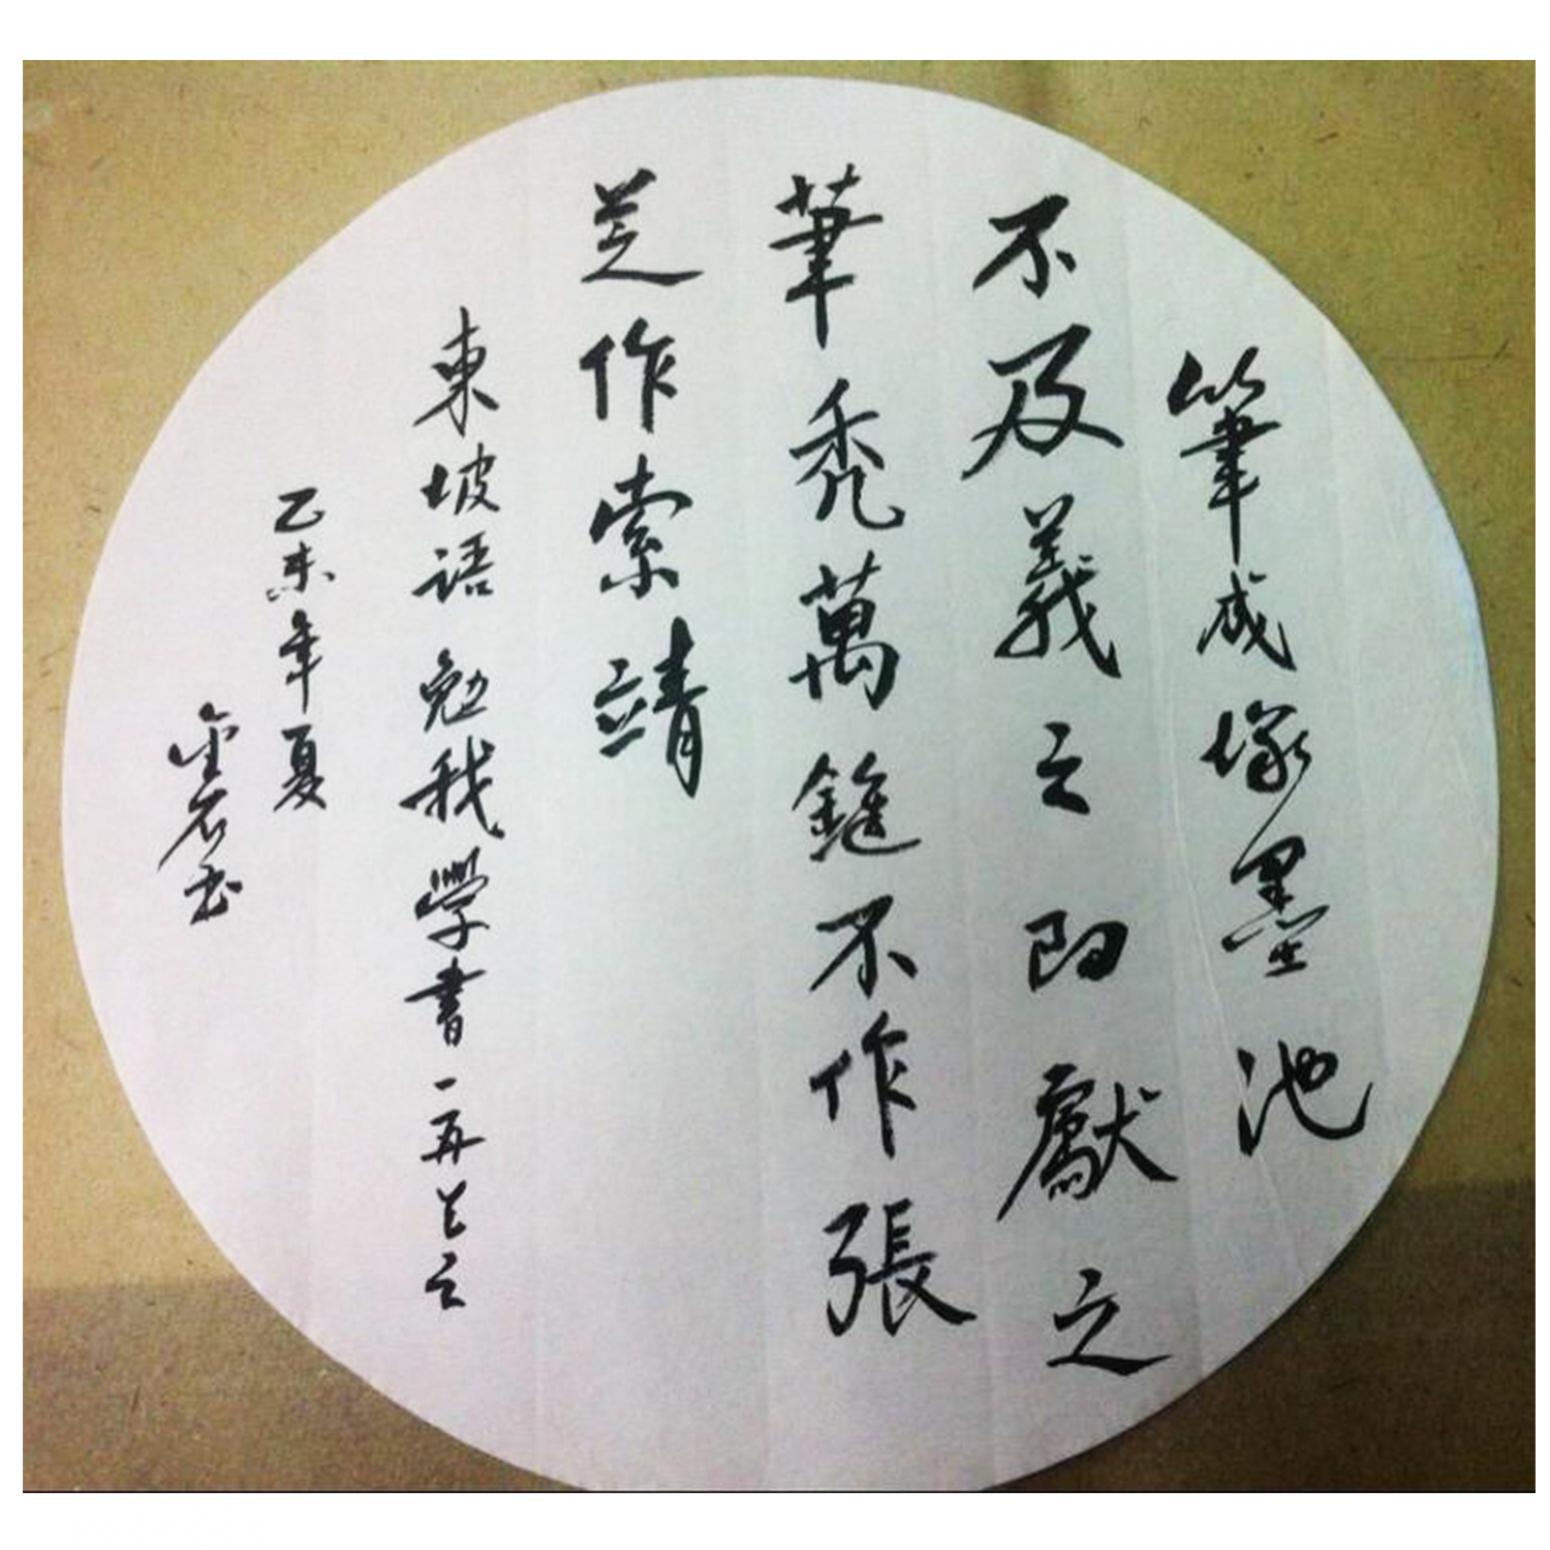 筆成塚墨池
不及羲之即獻之
筆禿萬錐不作張
芝作索靖
東坡語勉我學書一再上之
乙未年夏
金石書